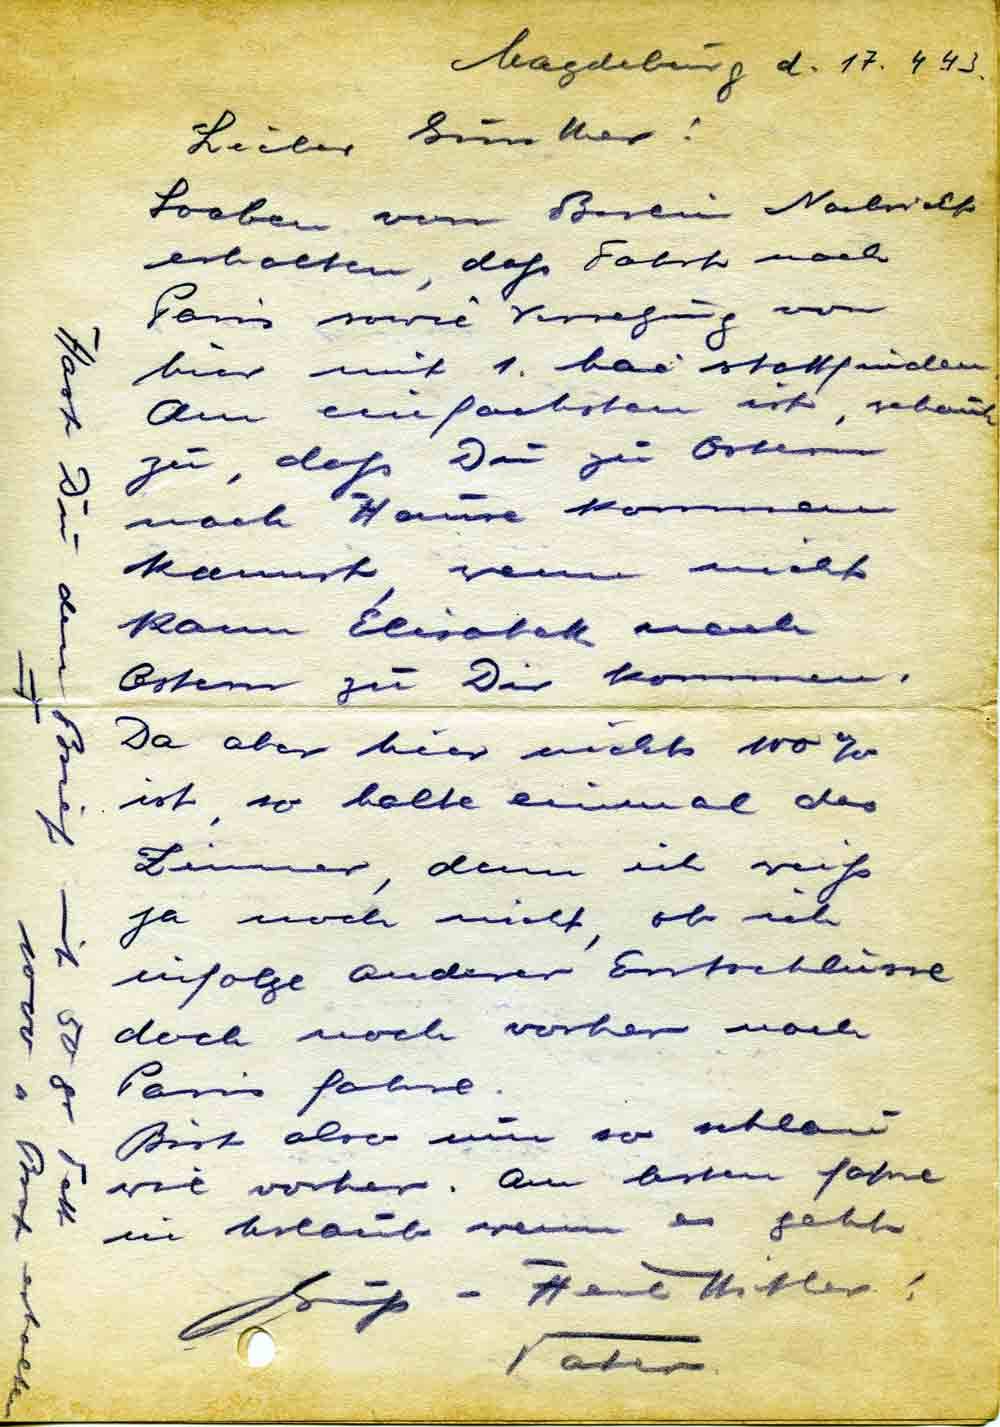 Magdeburg d. 17. 4 43.
Lieber Günther!
Soeben von Berlin Nachricht
erhalten, daß Fahrt nach
Paris sowie von
hier mit 1. Mai stattfinden.
Am einfachsten ist, schau
zu, daß Du zu Ostern
nach Hause kommen
kannst, wenn nicht
kann Elisabeth nach
Ostern zu Dir kommen.
Da aber hier nichts 100 %
ist, so halte einmal das
Zimmer, denn ich weiß
ja noch nicht, ob ich
infolge anderer Entschlüsse
doch noch vorher nach
Paris fahre.
Bist also nun so schlau
wie vorher. Am besten fahre
in Urlaub wenn es geht
Gruß - Heil Hitler!
Vater
Hast Du den Brief mit 50 gr Fett
erhalten